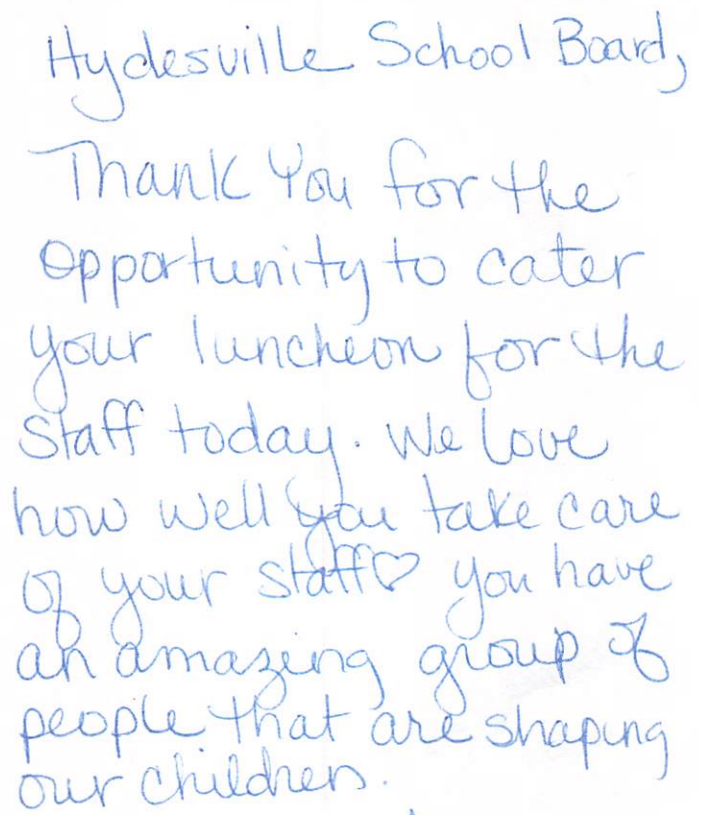 Hydesville School Board,
Thank You for the
opportunity to cater
your luncheon for the
staff today. We love
how well you take care
of your staff♡ you have
an amazing group of
people that are shaping
our children.